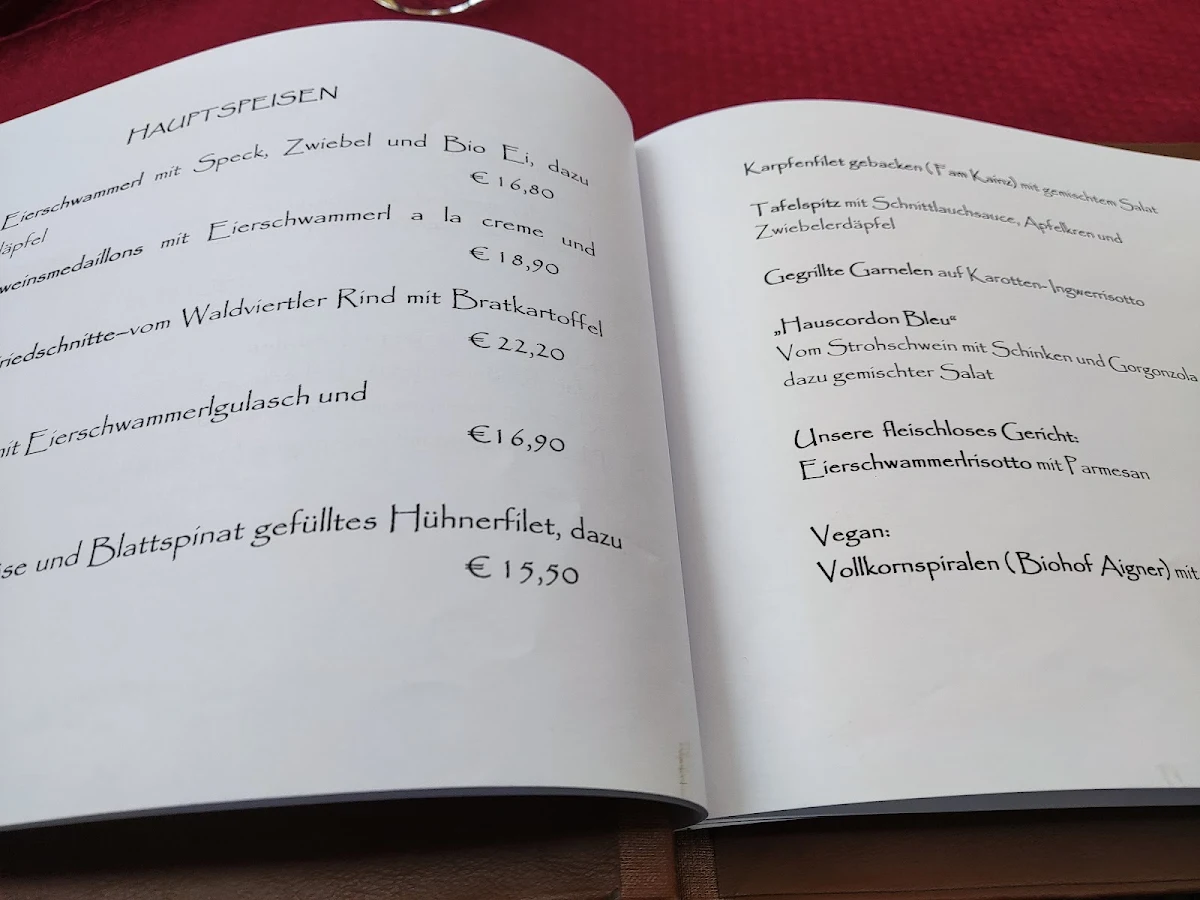 HAUPTSPEISEN
Eierschwammerl mit Speck, Zwiebel und Bio Ei, dazu
€ 16,80
mit Eierschwammerl a la creme und
€ 18,90
vom Waldviertler Rind mit Bratkartoffel
€ 22,20
Eierschwammerlgulasch und
€16,90
und Blattspinat gefülltes Hühnerfilet, dazu
€ 15,50
Karpfenfilet gebacken (Fam Kainz) mit gemischtem Salat
Tafelspitz mit Schnittlauchsauce, Apfelkren und
Zwiebelerdäpfel
Gegrillte Garnelen auf Karotten-Ingwerrisotto
„Hauscordon Bleu“
Vom Strohschwein mit Schinken und Gorgonzola
dazu gemischter Salat
Unsere fleischloses Gericht:
Eierschwammerlrisotto mit Parmesan
Vegan:
Vollkornspiralen (Biohof Aigner) mit